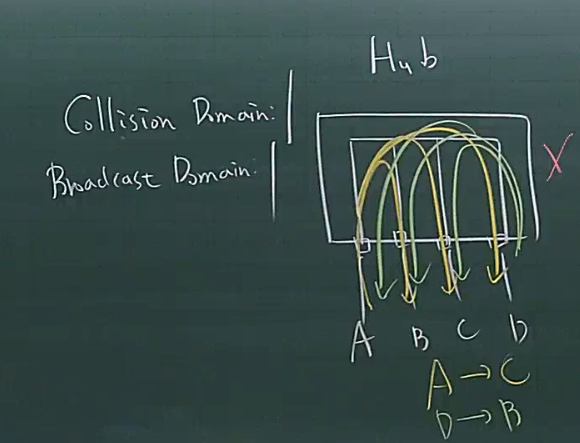 Hub
Collision Domain: 1
Broadcast Domain: 1
X
A B C D
A → C
D → B